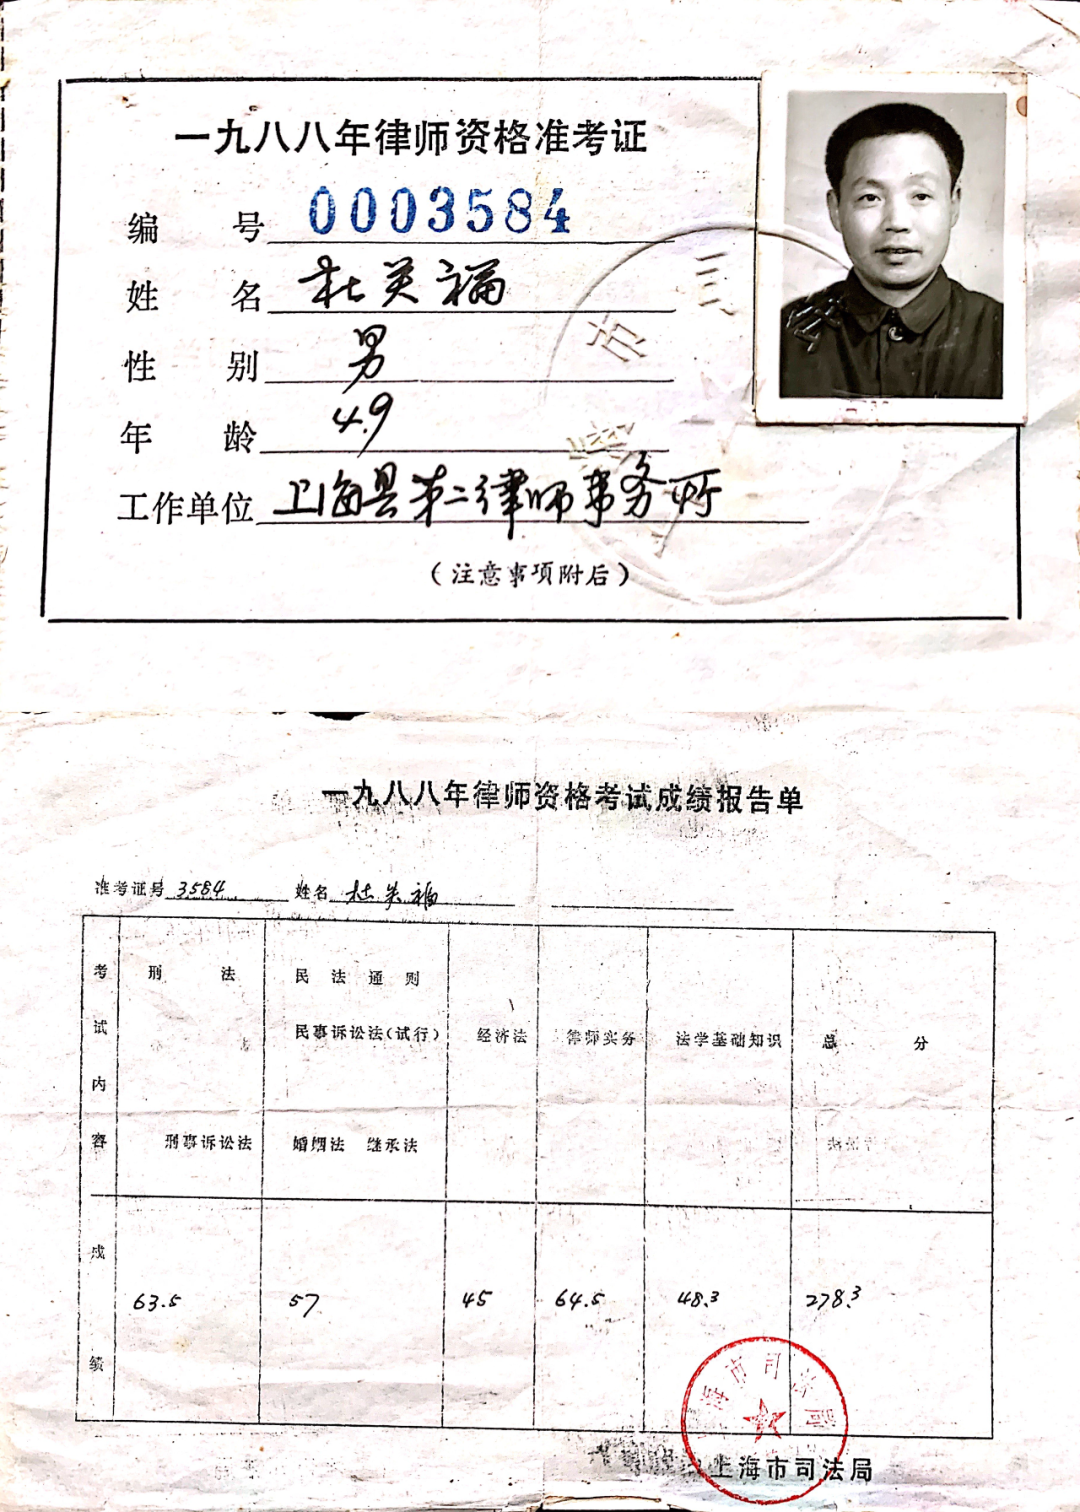 一九八八年律师资格准考证
编 号 0003584
姓 名 杜关福
性 别 男
年 龄 49
工作单位 上海县第二律师事务所
(注意事项附后)
一九八八年律师资格考试成绩报告单
准考证号 3584 姓名 杜关福
考试内容 刑 法 民 法 通 则
民事诉讼法(试行) 经济法 律师实务 法学基础知识 总 分
刑事诉讼法 婚姻法 继承法
成绩 63.5 57 45 64.5 48.3 278.3
上海市司法局
上海市司法局